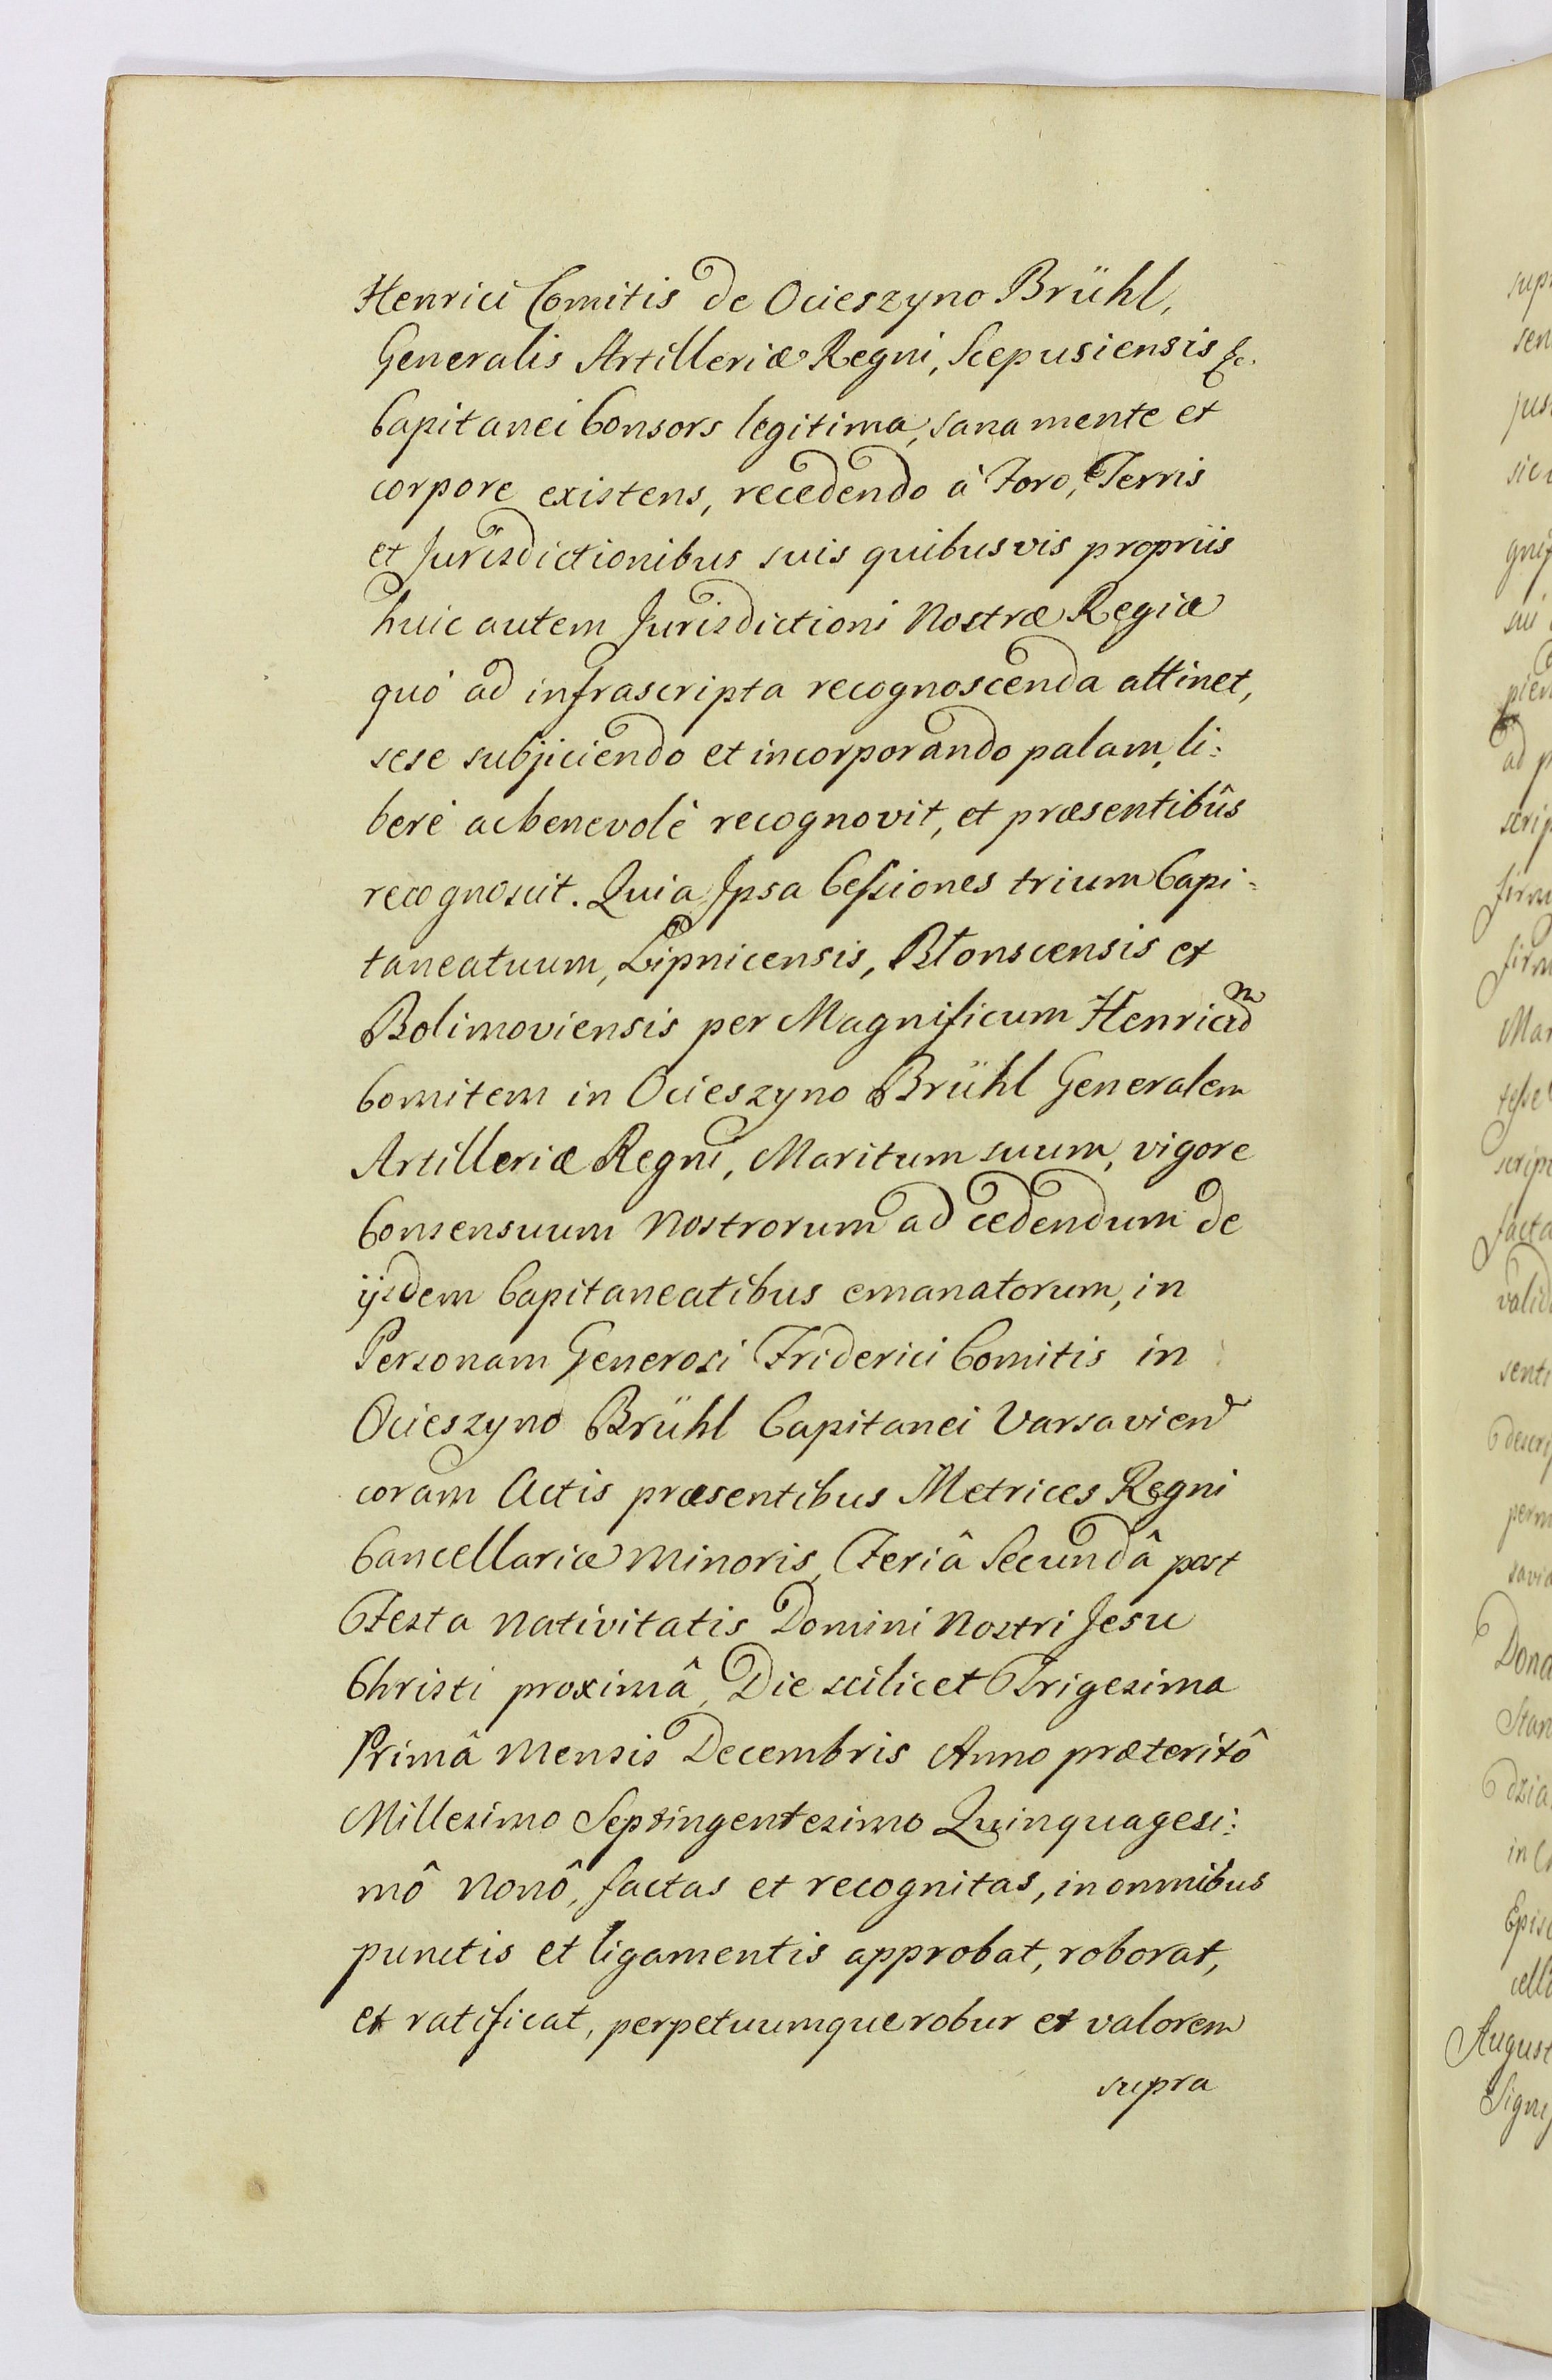 Henrici Comitis de Ocieszyno Brühl,
Generalis Artilleriæ Regni, Scepusiensis &c.
Capitanei Consors legitima, sana mente et
corpore existens, recedendo à Foro, Terris
et Jurisdictionibus suis quibusvis propriis
huic autem Jurisdictioni Nostræ Regiæ
quó ad infrascripta recognoscenda attinet,
sese subjiciendo et incorporando palam, li:
berè ac benevolè recognovit, et præsentibûs
recognoscit. Quia Ipsa Cessiones trium Capi=
taneatuum, Lipnicensis, Błonscensis et
Bolimoviensis per Magnificum Henricum
Comitem in Ocieszyno Brühl Generalem
Artilleriæ Regni, Maritum suum, vigore
Consensuum Nostrorum ad cedendum de
ijsdem Capitaneatibus emanatorum, in
Personam Generosi Friderici Comitis in
Ocieszyno Brühl Capitanei Varsavien
coram Actis præsentibus Metrices Regni
Cancellariæ Minoris, Feriâ Secundâ post
Festa Nativitatis Domini Nostri Jesu
Christi proximâ, Die scilicet Trigesima
Primâ Mensis Decembris Anno præteritô
Millesimo Septingentesimo Quinquagesi:
mô Nonô, factas et recognitas, in omnibus
punctis et ligamentis approbat, roborat,
et ratificat, perpetuumque robur et valorem
supra